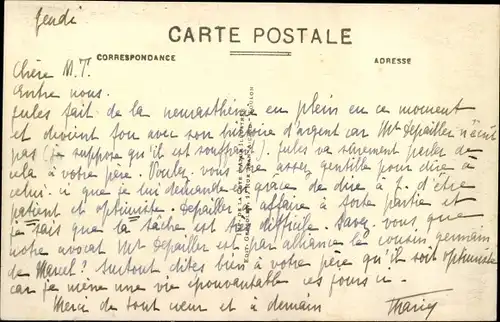 Jeudi
CARTE POSTALE
CORRESPONDANCE
ADRESSE
Chère M.T.
Entre nous.
Jules fait de la neurasthénie en plein en ce moment
et devient fou avec son histoire d'argent car Mt Depailler n'écrit
pas (je suppose qu'il est souffrant). Jules va sûrement parler de
cela à votre père. Voulez vous être assez gentille pour dire à
celui-ci que je lui demande en grâce de dire à J. d'être
patient et optimiste. Depailler a affaire à forte partie et
je sais que la tâche est très difficile. Savez-vous que
notre avocat Mt Depailler est par alliance le cousin germain
de Marcel? Surtout dites bien à votre père qu'il soit optimiste
car je mène une vie épouvantable ces jours ci.
Merci de tout cœur et à demain